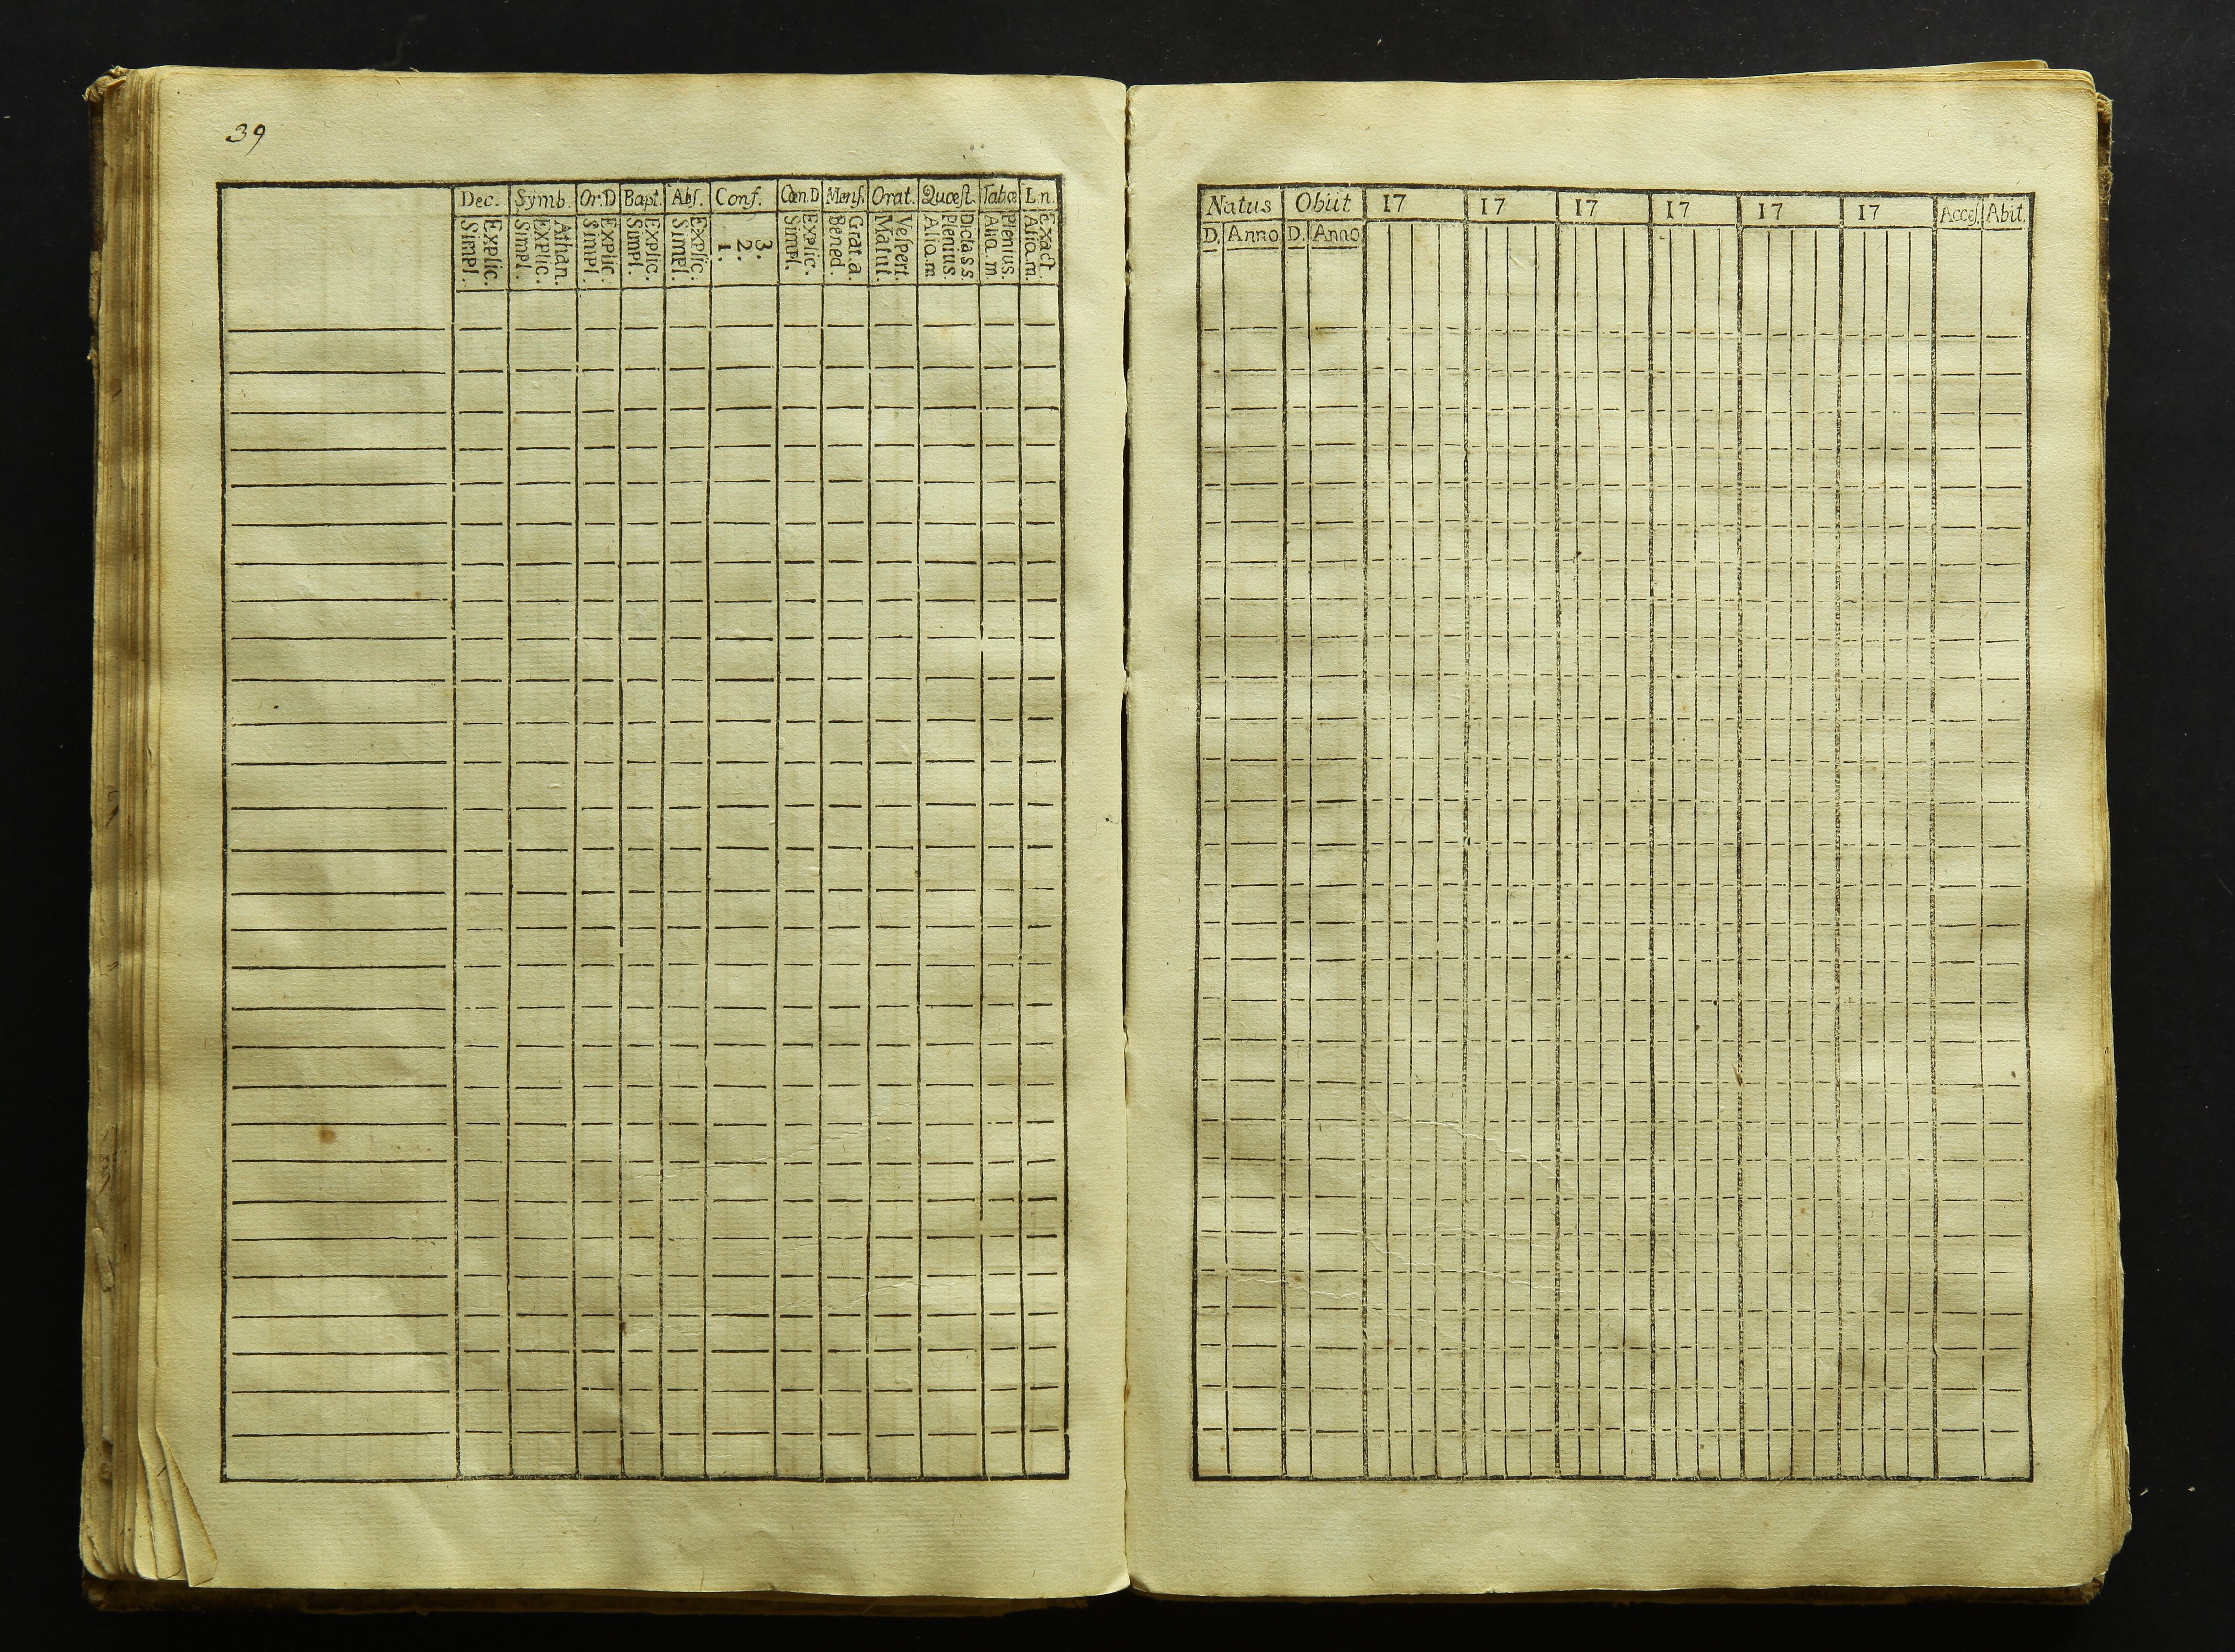 39
Dec. Symb. Or.D Bapt. Abſ. Conf. Cœn.D Menſ. Orat. Quæſt. Tab.œ L.n.
Explic.
Simpl.
Athan.
Explic.
Simpl.
Explic.
Simpl.
Explic.
Simpl.
Explic.
Simpl.
3.
2.
1.
Explic.
Simpl.
Grat.a.
Bened.
Veſpert.
Matut.
Dicta s s
Plenius.
Aliq.m
Plenius.
Aliq.m.
exact.
Aliq.m.
Natus Obiit 17 17 17 17 17 17 Acceſ. Abit.
D. Anno D. Anno